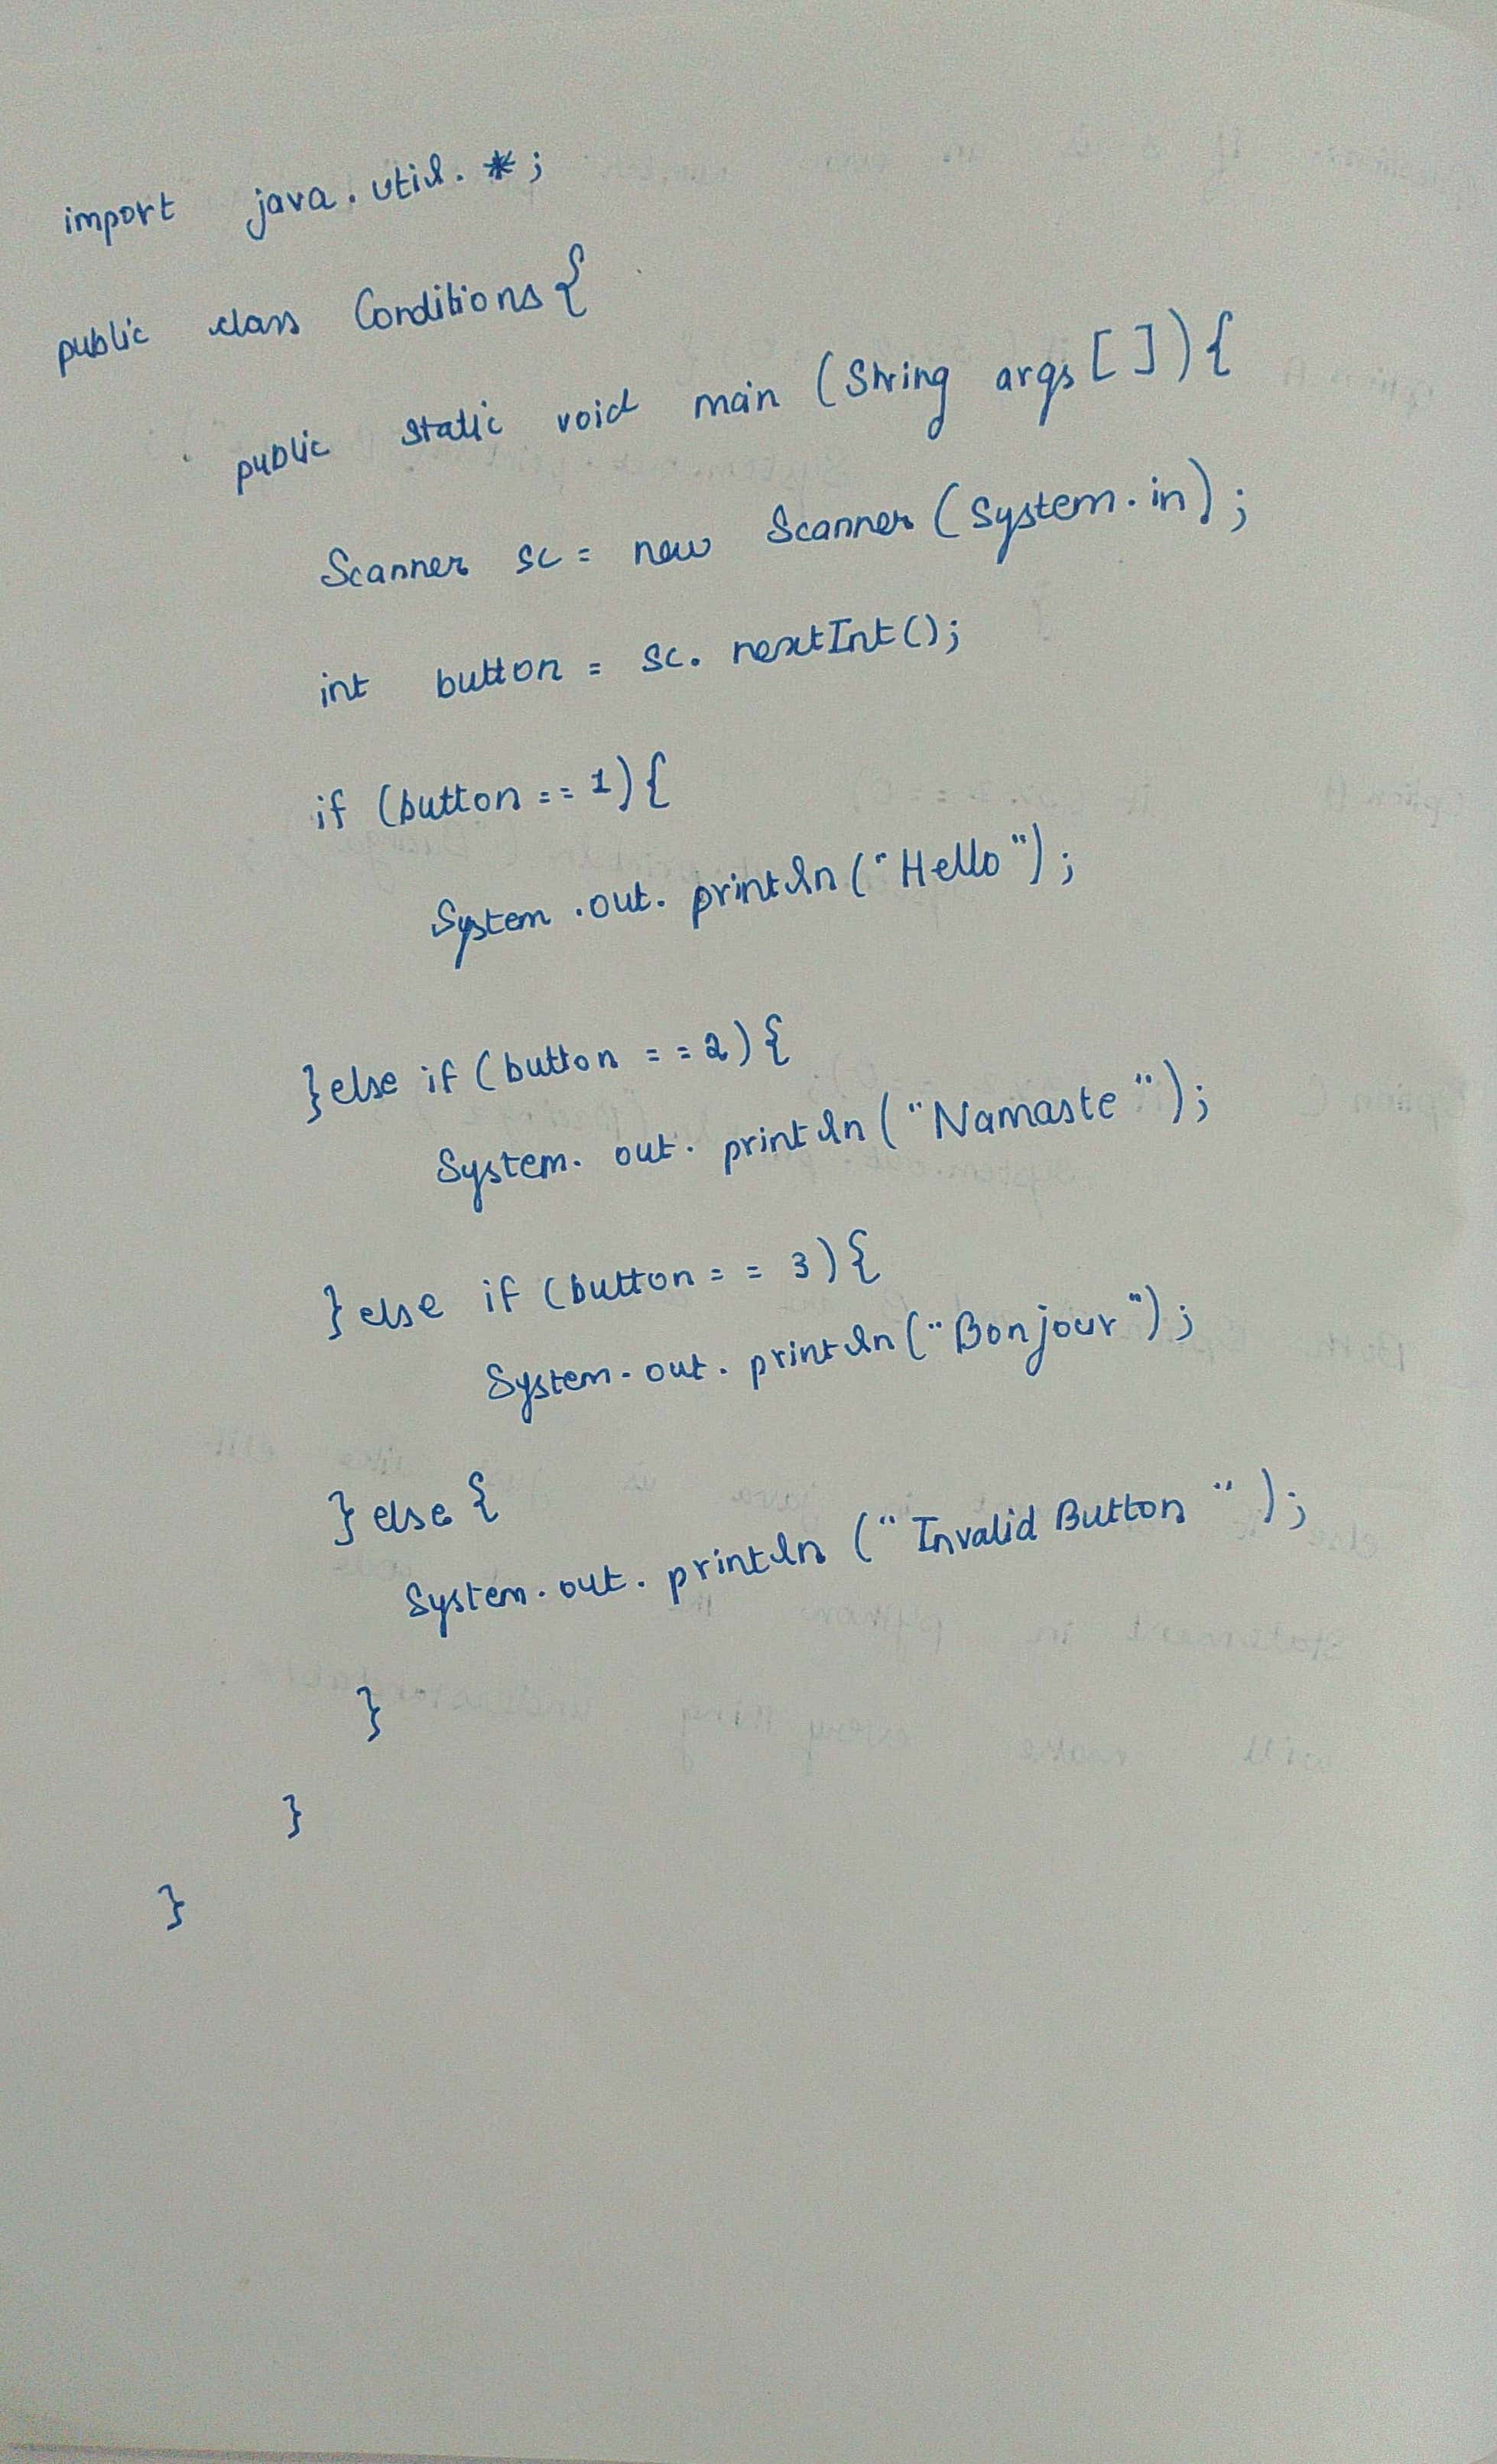 import java.util.*;
public class Conditions{
public static void main (String args[]){
Scanner sc = new Scanner (System.in);
int button = sc. nextInt();
if (button == 1){
System.out.println("Hello");
}else if (button == 2){
System.out.println("Namaste");
}else if (button == 3){
System.out.println("Bonjour");
}else{
System.out.println("Invalid Button");
}
}
}